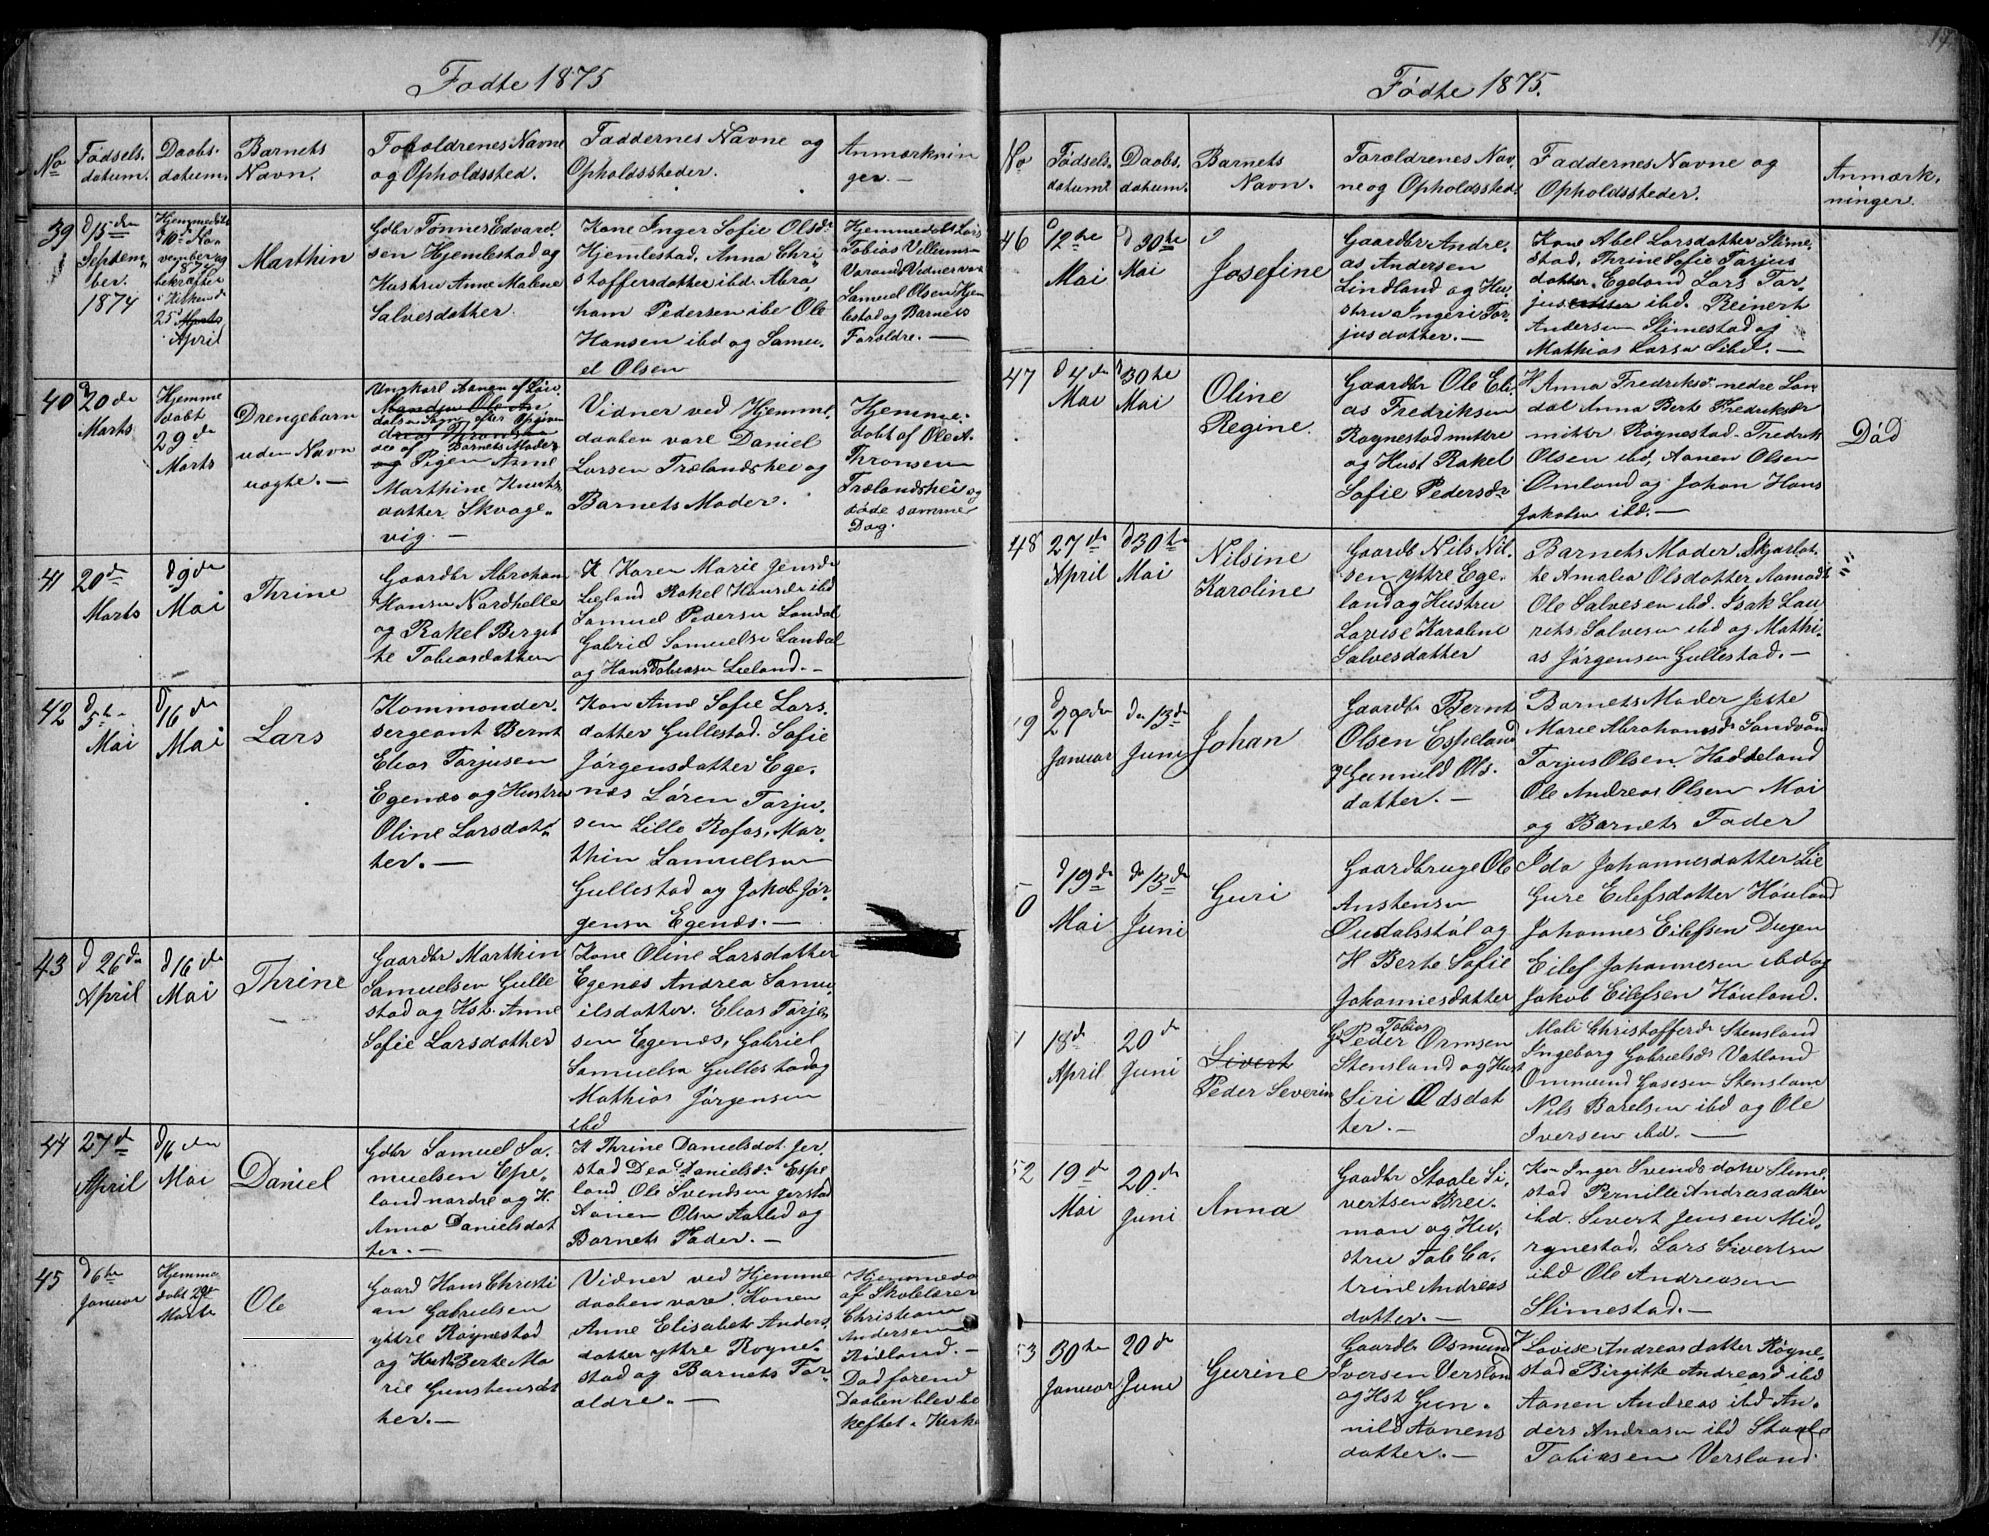 Fødte 1875
No
Fødsels-
datum.
Daabs-
datum.
Barnets
Navn.
Foræoldrenes Navne
og Opholdssted.
Faddernes Navne og
Opholdssteder.
Anmærknin
ger. —
39
d 15de
Septem-
ber.
1874
Hjemmedøbt
10de No-
vember og
bekræftet
i Kirken d
25 Marts
April
Marthin
Gdbr Tønnes Edvard
sen Hjemlestad og
Hustru Anne Malene
Salvesdatter
Kone Inger Sofie Olsdr
Hjemlestad, Anna Chri
stoffersdatter ibd. Abra
ham Pedersen ibd Ole
Hansen ibd og Samu-
el Olsen
Hjemmedøbt Lars
Tobias Villums-
Vidner var
Samuel Olsen Hjem
lestad og Barnets
Foræoldre. —
40
d 20de
Marts
Hjemme
døbt
29de
Marts
Drengebarn
uden Navn
uægte. —
Ungkarl
Pigen Anne
Marthine Knuts
datter Skvage-
vig. —
Vidner ved Hjemme
daaben vare Daniel
Larsen Trælandshei og
Barnets Moder.
Hjemme-
døbt af Ole A.
Thronsen
Trælandshei og
døde samme
Dag.
41
20de
Marts
d 9de
Mai
Thrine
Gaardbr Abraham
Hansen Nordhelle
og Rakel Birgit
te Tobiasdatter
K Karen Marie Jensdr
Lieland Rakel Hansdr ibd
Samuel Pedersen Landal
Gabriel Samuelsen Landal
og Hans Tobiasen Lieland. —
42
d 5te
Mai
d 16de
Mai
Lars
Kommander-
sergeant Bernt
Elias Torjusen
Egenes og Hustru
Oline Larsdat-
ter. —
Kon Anne Sofie Lars-
datter Gullestad. Sofie
Jørgensdatter Ege-
nes Søren Torju-
sen Lille Rafos, Mar-
thin Samuelsen
Gullestad og Jakob Jør-
gensen Egenes. —
43
d 26de
April
d 16de
Mai
Thrine
Gaardbr Marthin
Samuelsen Gulle
stad og Hst. Anne
Sofie Larsdatter
Kone Oline Larsdatter
Egenes Andrea Samu-
elsdatter. Elias Torje-
sen Egenes, Gabriel
Samuelsen Gullestad og
Mathias Jørgensen
ibd
44
27de
April
d 16de
Mai
Daniel
Gdbr Samuel Sa-
muelsen Espe-
land nordre og H.
Anna Danielsdat
ter. —
K Thrine Danielsdat. Jer-
stad Dea Danielsdr Espe
land. Ole Svendsen Jerstad
Aanen Olsen og
Barnets Fader. —
45
d 6te
Januar
Hjemme-
døbt 29de
Marts
Ole
Gaard Hans Christi
an Gabrielsen
yttre Røynestad
og Hust Berte Ma
rie Gunstensdat
ter. —
Vidner ved Hjemme
daaben vare. Konen
Anne Elisabeth Anders-
datter yttre Røyne-
stad og Barnets For-
ældre. —
Hjemmedø
af Skolelærer
Christian
Andersen
Rødland. —
Død forend
Daaben blev be
kræftet i Kirke
17
Fødte 1875.
No
Fødsels-
datum
Daabs-
datum.
Barnets
Navn.
Foræoldrenes Nav-
ne og Opholdssted.
Faddernes Navne og
Opholdssteder.
Anmærk-
ninger.
46
12te
Mai
d 30te
Mai
Josefine
Gaardbr Andre-
as Andersen
Lindland og Hu-
stru Ingeri Tor-
jusdatter. —
Kone Abel Larsdatter Slime-
stad. Thrine Sofie Torjus
datter Egeland Lars Tor-
jus ibd. Reinert
Andersen Slimestad og
Mathias Larsen ibd. —
47
d 4de
Mai
d 30te
Mai
Oline
Regine.
Gaardbr Ole Eli-
as Fredriksen
Røynestad mittre
og Hust Rakel
Sofie Pedersdr
H Anna Fredriksdr nedre Lan
dal Anna Berte Fredriksdr
mittre Røynestad. Fredrik
Olsen ibd, Aanen Olsen
Omland og Johan Hans
Jakobsen ibd. —
Død
48
27de
April
d 30te
Mai
Nilsine
Karoline
Gaardb Nils Nil-
sen yttre Ege-
land og Hustru
Lovise Karoline
Salvesdatter
Barnets Moder Skjarlot-
te Amalia Olsdatter Aamodt
Ole Salvesen ibd. Isak Lau-
rits Salvesen ibd og Mathi-
as Jørgensen Gullestad. —
9
d 29de
Januar
de 13de
Juni
Johan
Gaardbr Bernt
Olsen Espeland
og Gunnild Ols-
datter. —
Barnets Moder Jette
Marie Abrahamsdr Sandvan
Torjus Olsen Haddeland
Ole Andreas Olsen Moi
og Barnets Fader
50
d 19de
Mai
de 13de
Juni
Guri
Gaardbruge Ole
Anstensen
Øudalsstøl og
H Berte Sofie
Johannesdatter
Ida Johannesdatter Lie
Gure Eilefsdatter Høuland
Johannes Eilefsen Dugen
Eilef Johannesen ibd og
Jakob Eilefsen Høuland.
1
18de
April
20de
Juni
Sivert
Peder Severin
G Tobias
Peder Ormsen
Stensland og Hust
Siri Odsdat
ter. —
Mali Christoffersdr Stensland
Ingeborg Gabrielsdr Vatland
Ommund Gosesen Stensland
Nils Borelsen ibd og Ole
Iversen ibd. —
52
19de
Mai
20de
Juni
Anna
Gaardbr Staale Si-
vertsen Brei-
man og Hu-
stru Tob Ca-
trine Andreas
datter. —
Kon Inger Svendsdatter Slime-
stad Pernille Andreasdatter
ibd. Sivert Jensen Mid-
rynestad. Lars Sivertsen
ibd Ole Andreasen
Slimestad. —
53
30te
Januar
20de
Juni
Gurine
Gaardbr Osmund
Iversen Versland
og Hst Gun-
nild Aanens
datter. —
K Lovise Andreasdatter Røyne-
stad Birgitte Andreasd ibd
Aanen Andreas ibd An-
ders Andreasen ibd Staale
Tobiasen Versland.